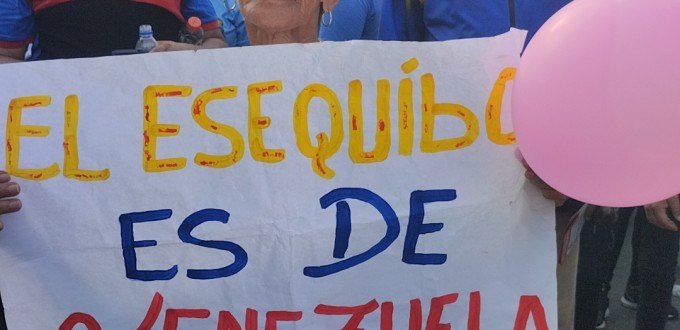 EL ESEQUÍbO
ES DE
VENEZUELA